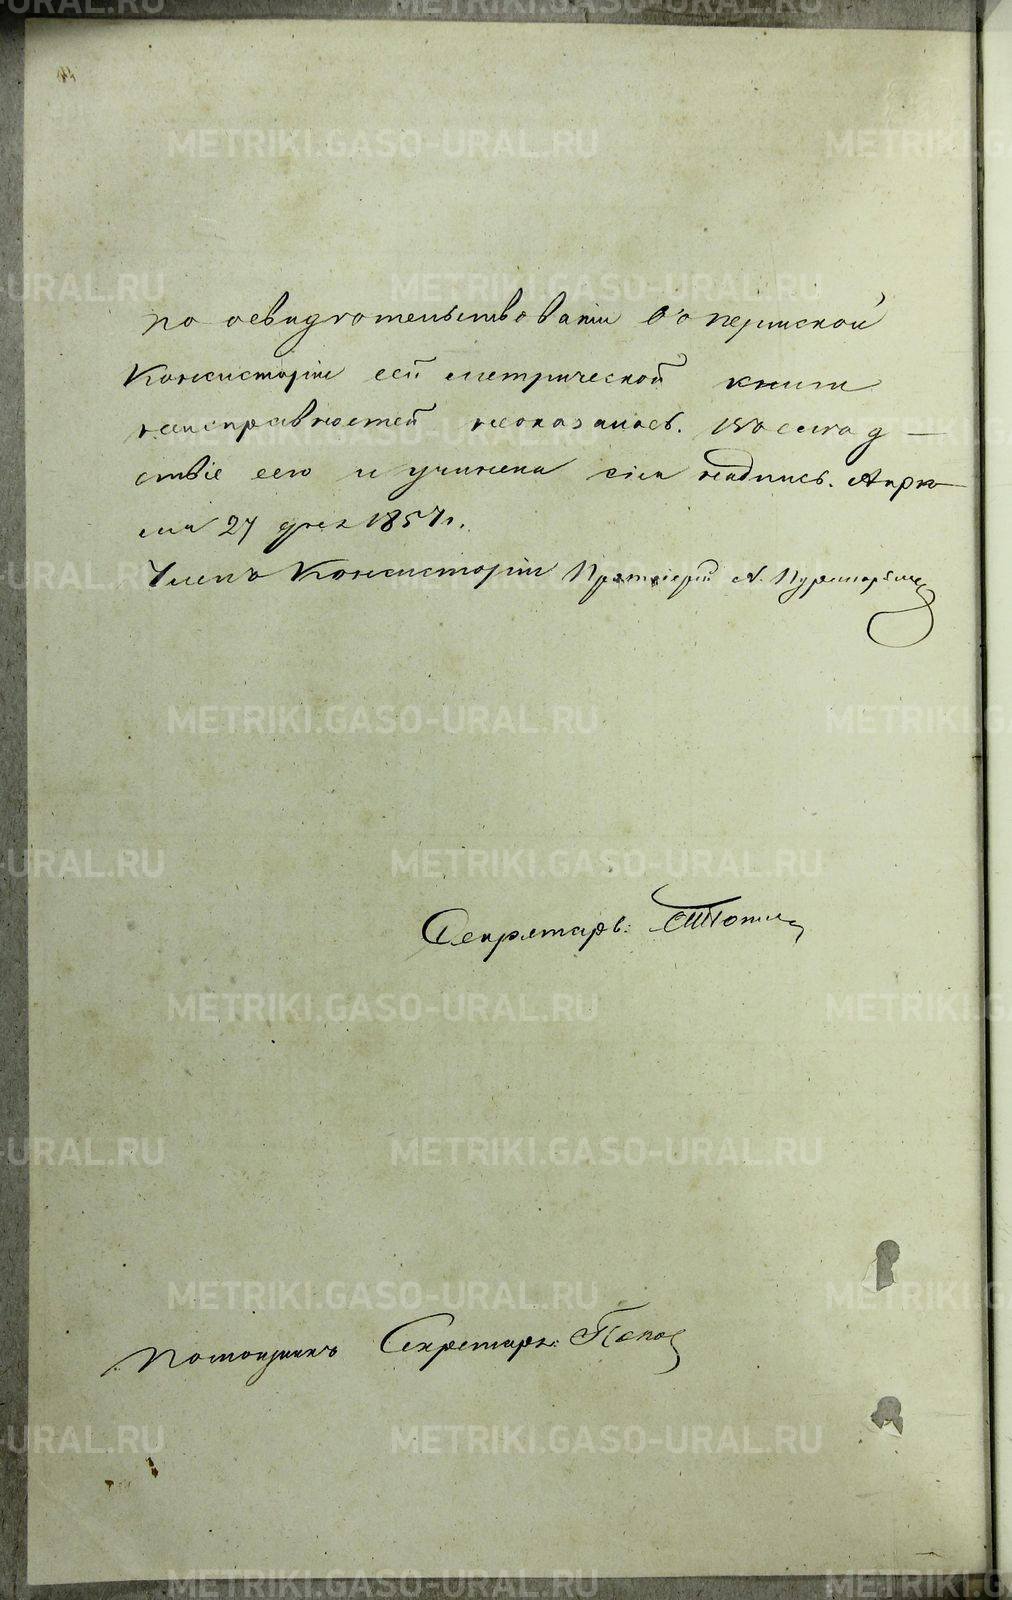 по освидѣтельствованіи въ Пермской
Консисторіи сей метрической книги
неисправностей неоказалось. Вслѣд-
ствіе сего и учинена сія надпись. Апрѣ-
ля 27 дня 1857 г.
Членъ Консисторіи Протоіерей А.
Секретарь:
Помощникъ Секретаря Попов
METRIKI.GASO-URAL.RU